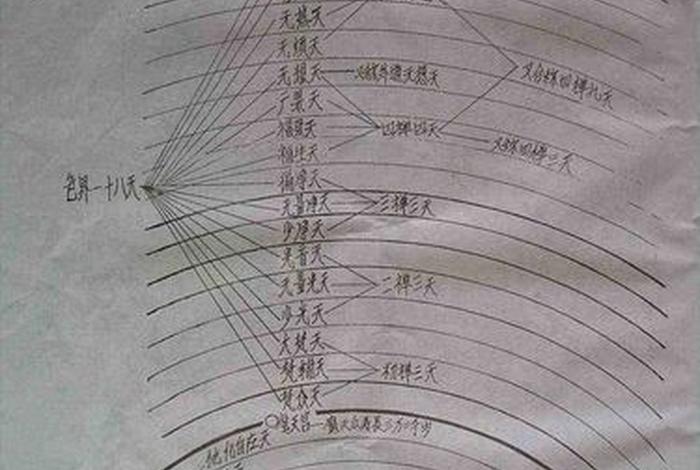 无热天
无烦天
无想天
又称外道天想天
又合称四禅九天
广果天
福爱天
四禅四天
福生天
又称四禅三天
色界一十八天
福净天
无量净天
三禅三天
少净天
光音天
无量光天
二禅三天
少光天
大梵天
梵辅天
初禅三天
梵众天
他化自在天